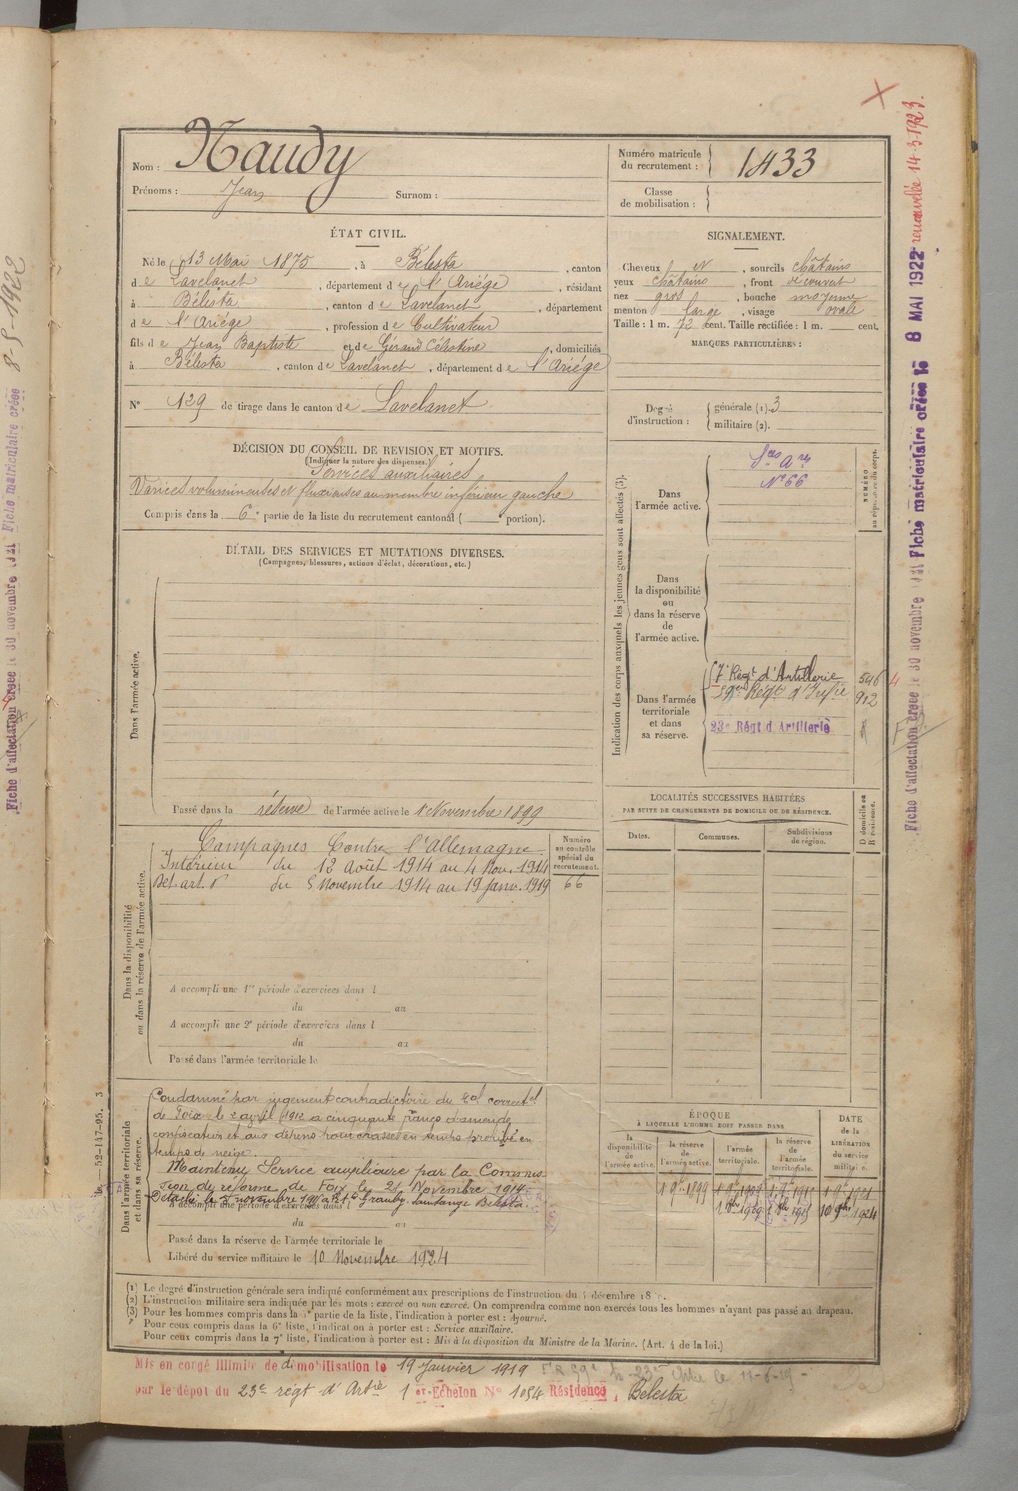 Naudy
Nom :
Prénoms : Jean Surnom :
Numéro matricule
du recrutement : 1433
Classe
de mobilisation :
ÉTAT CIVIL.
Né le 13 Mai 1875, à Bélesta, canton
de Lavelanet, département de l'Ariége, résidant
à Bélesta, canton de Lavelanet, département
de l'Ariége, profession de Cultivateur
fils de Jean Baptiste et de Gérand Célestine, domiciliés
à Bélesta, canton de Lavelanet, département de l'Ariége
N° 129 de tirage dans le canton de Lavelanet
SIGNALEMENT.
Cheveux et N, sourcils châtains
yeux châtains, front découvert
nez gros, bouche moyenne
menton large, visage ovale
Taille : 1 m. 72 cent. Taille rectifiée : 1 m. cent.
MARQUES PARTICULIÈRES :
Degré
d'instruction :
générale (1). 3
militaire (2).
DÉCISION DU CONSEIL DE REVISION ET MOTIFS.
(Indiquer la nature des dispenses.)
Services auxiliaires
Varices volumineuses et flexueuses au membre inférieur gauche
Compris dans la 6e partie de la liste du recrutement cantonal ( portion).
DÉTAIL DES SERVICES ET MUTATIONS DIVERSES.
(Campagnes, blessures, actions d'éclat, décorations, etc.)
Dans l'armée active.
Passé dans la réserve de l'armée active le 1 Novembre 1899
Indication des corps auxquels les jeunes gens sont affectés (3).
Dans
l'armée active.
Sces Ares
N° 66
NUMÉRO
au répertoire du corps.
Dans
la disponibilité
ou
dans la réserve
de
l'armée active.
Dans l'armée
territoriale
et dans
sa réserve.
Régt d'Artillerie
Régt d'Infie 912
23e Régt d'Artillerie
Dans la disponibilité
ou dans la réserve de l'armée active.
Campagnes Contre l'Allemagne
Intérieur du 12 Août 1914 au 4 Nov. 1914
Dét. art. du 5 Novembre 1914 au 19 Janv. 1919
Numéro
au contrôle
spécial du
recrutement.
66
A accompli une 1re période d'exercices dans l
du au
A accompli une 2e période d'exercices dans l
du au
Passé dans l'armée territoriale le
LOCALITÉS SUCCESSIVES HABITÉES
PAR SUITE DE CHANGEMENTS DE DOMICILE OU DE RÉSIDENCE.
Dates.
Communes.
Subdivisions
de région.
D domicile ou
R résidence.
Dans l'armée territoriale
et dans sa réserve.
Condamné par jugement contradictoire du Bal correctel
de Foix le 2 avril 1912 a cinquante francs d'amende
confiscation et aux dépens pour chasse en temps prohibé en
temps de neige.
Maintenu Service auxiliaire par la Commis
sion de réforme de Foix le 21 Novembre 1914
Détaché le 5 novembre 191 Bélesta.
A accompli une période d'exercices dans l
du au
Passé dans la réserve de l'armée territoriale le
Libéré du service militaire le 10 Novembre 1924
ÉPOQUE
À LAQUELLE L'HOMME DOIT PASSER DANS
la
disponibilité
de
l'armée active.
la réserve
de
l'armée active.
l'armée
territoriale.
la réserve
de
l'armée
territoriale.
DATE
de la
LIBÉRATION
du service
militaire.
10 9bre 1924
(1) Le degré d'instruction générale sera indiqué conformément aux prescriptions de l'instruction du décembre 18
(2) L'instruction militaire sera indiquée par les mots : exercé ou non exercé. On comprendra comme non exercés tous les hommes n'ayant pas passé au drapeau.
(3) Pour les hommes compris dans la partie de la liste, l'indication à porter est : Ajourné.
Pour ceux compris dans la 6e liste, l'indication à porter est : Service auxiliaire.
Pour ceux compris dans la 7e liste, l'indication à porter est : Mis à la disposition du Ministre de la Marine. (Art. 4 de la loi.)
Mis en congé illimité de démobilisation le 19 Janvier 1919
par le dépôt du 23e régt d'Artie 1er Echelon N° 1054 Résidence, Bélesta
Fiche d'affectation créée le 30 novembre 1921 Fiche matriculaire créée le 8 MAI 1922 renouvelée 14-3-1923.
Fiche d'affectation créée le 30 novembre 1921 Fiche matriculaire créée 8-5 1922